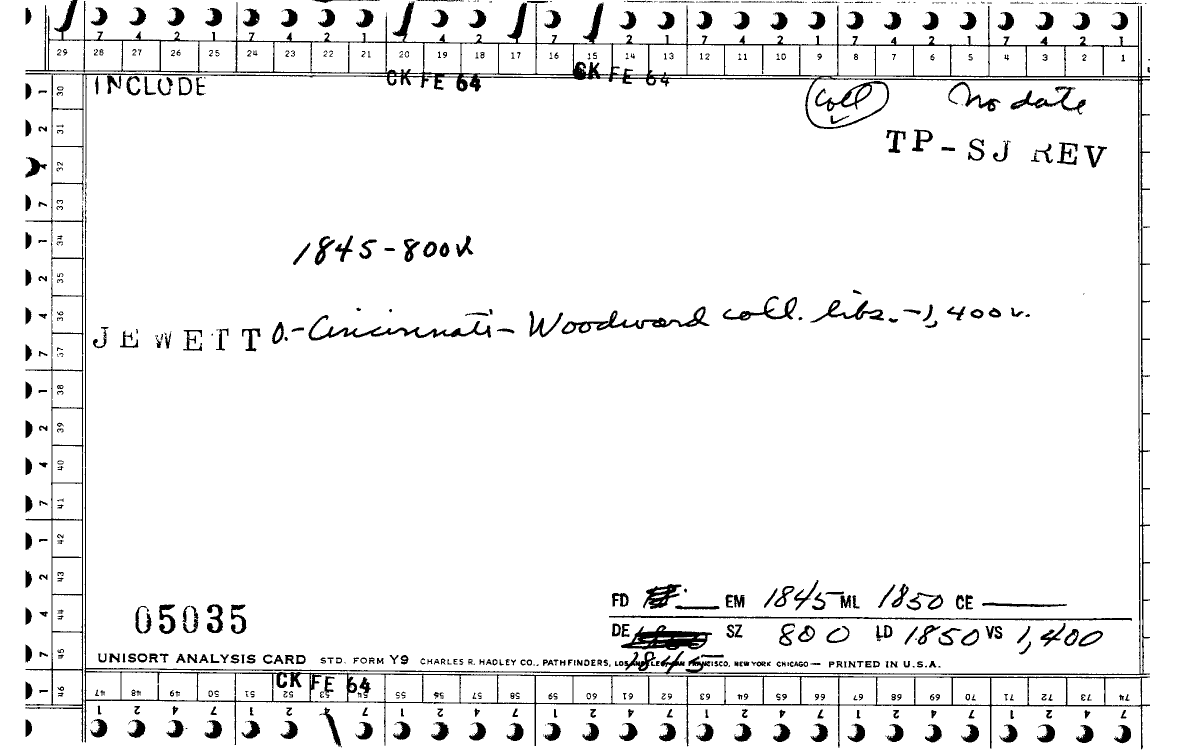 7 4 2 1 7 4 2 1 7 4 2 1 7 4 2 1 7 4 2 1 7 4 2 1 7 4 2 1
29 28 27 26 25 24 23 22 21 20 19 18 17 16 15 14 13 12 11 10 9 8 7 6 5 4 3 2 1
CK FE 64 CK FE 64
INCLUDE coll No date
TP-SJ REV
1 30
2 31
4 32
7 33
1 34
2 35
4 36
7 37
1 38
2 39
4 40
7 41
1 42
2 43
4 44
7 45
1 46
1845-800v
JEWETT O.-Cincinnati-Woodward coll. libs.-1,400v.
FD EM 1845 ML 1850 CE
05035
DE 1845 SZ 800 LD 1850 VS 1,400
UNISORT ANALYSIS CARD STD. FORM Y9 CHARLES R. HADLEY CO., PATHFINDERS, LOS ANGELES SAN FRANCISCO, NEW YORK CHICAGO — PRINTED IN U.S.A.
CK FE 64
47 48 49 50 51 52 53 54 55 56 57 58 59 60 61 62 63 64 65 66 67 68 69 70 71 72 73 74
1 2 4 7 1 2 4 7 1 2 4 7 1 2 4 7 1 2 4 7 1 2 4 7 1 2 4 7